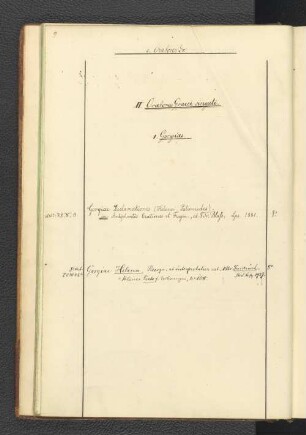 II Oratores Graeci singuli
1 Gorgias
Gorgiae Declamationes (Helena, Palamedes)
Antiphontis Orationes et Fragm., ed. Fr. Blass, Lps. 1881. 8°
Gorgiae Helena. Recogn. et interpretatus est Otto Immisch. 8°
Berl. & Lpz. 1927.
= Kleine Texte f. Vorlesungen, No 158